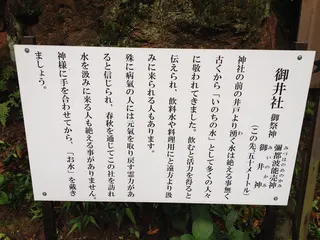 御井社 御祭神 彌都波能売神
みづはのめのかみ
御井神
みいのかみ
(この先、五十メートル)
神社の前の井戸より湧く水は絶える事無く
古くから「いのちの水」として多くの人々
に敬われてきました。飲むと活力を得ると
伝えられ、飲料水や料理用にと遠方より汲
みに来られる人もあります。
殊に病気の人には元気を取り戻す霊力があ
ると信じられ、春秋を通じてこの社を訪れ
水を汲みに来る人も絶える事がありません。
神様に手を合わせてから、「お水」を戴き
ましょう。